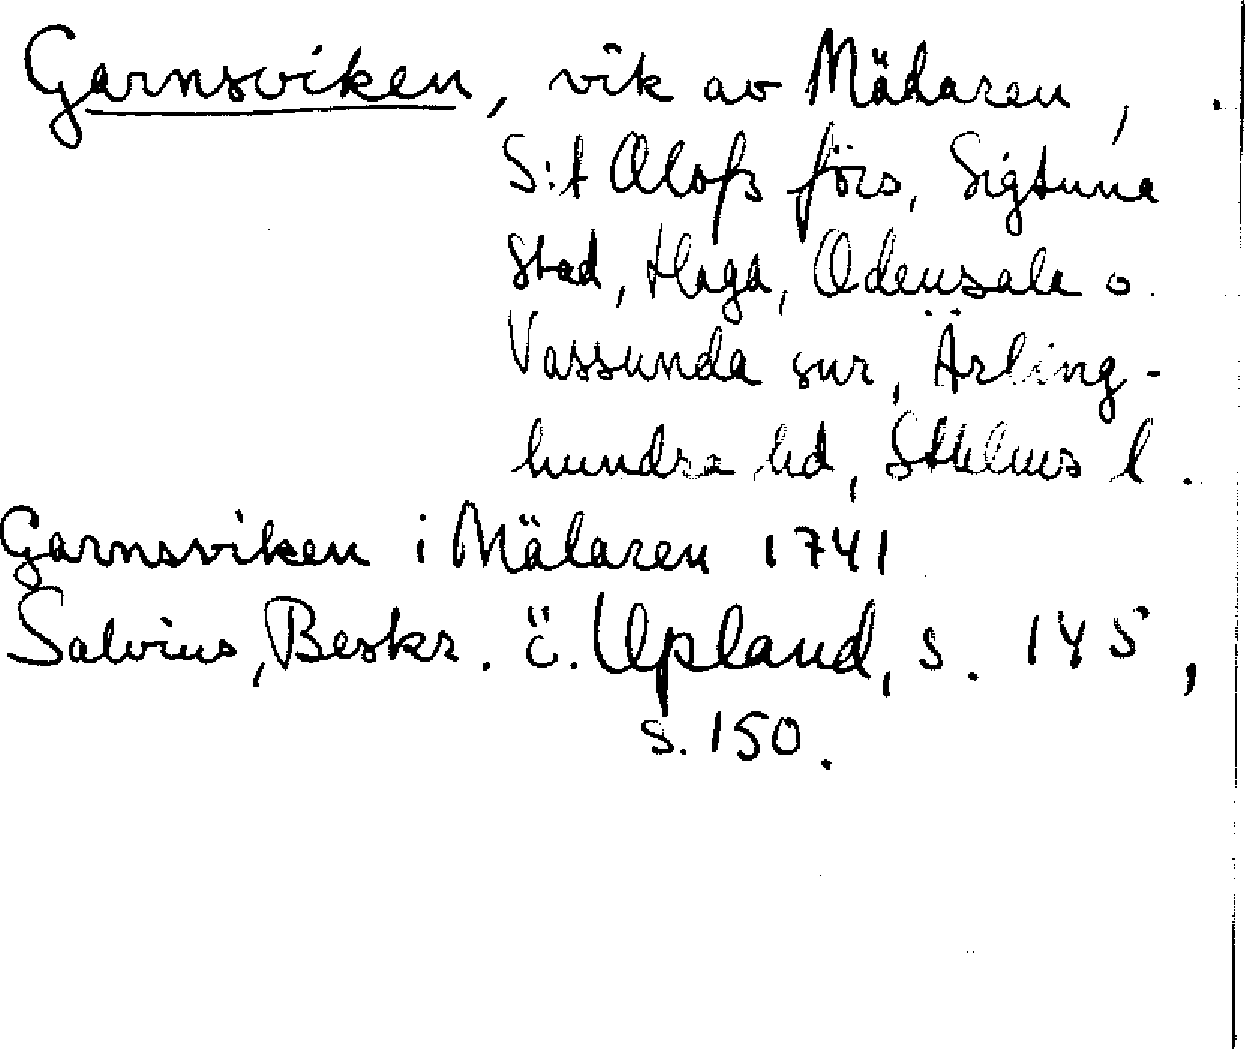 Garnsviken, vik av Mälaren,
S:t Olofs förs, Sigtuna
stad, Haga, Odensala o.
Vassunda snr, Ärling-
hundra hd, Sthlms l.
Garnsviken i Mälaren 1741
Salvius, Beskr. ö. Upland, s. 145,
s. 150.